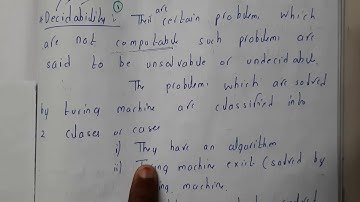 ① are
* Decidability :- Their certain problem which
are not computable such problems are
said to be unsolvable or undecidable.
The problems which are solved
by turing machine are classified into
2 classes or cases
i) They have an algorithm
ii) machine exist (solved by
machine.